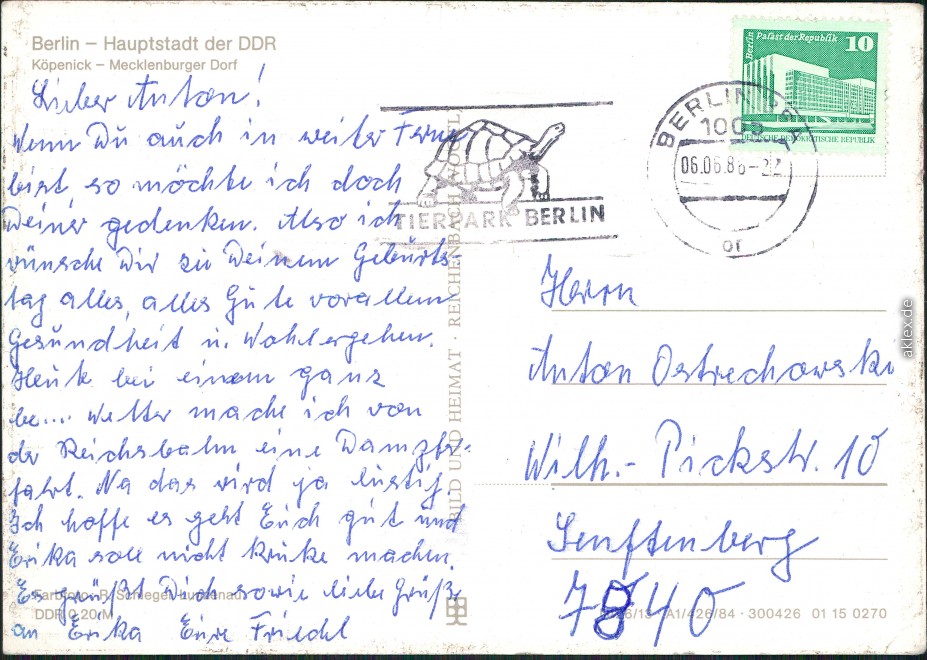 Berlin – Hauptstadt der DDR
Köpenick – Mecklenburger Dorf
Lieber Anton!
Wenn Du auch in weiter Ferne
bist, so möchte ich doch
Deiner gedenken. Also ich
wünsche Dir zu Deinem Geburts-
tag alles, alles Gute vorallem
Gesundheit u. Wohlergehen.
Heute bei einem ganz
be... Wetter mache ich von
der Reichsbahn eine Dampfer-
fahrt. Na das wird ja lustig.
Ich hoffe es geht Euch gut und
Erika soll nicht machen.
Es grüßt Dich sowie liebe Grüße
an Erika Eure Friedl
DDR 0,20 M
BILD UND HEIMAT · REICHENBACH
TIERPARK BERLIN
BERLIN
1005
06.06.86-22
or
Berlin Palast der Republik 10
DEUTSCHE DEMOKRATISCHE REPUBLIK
Herrn
Anton Ostrechowski
Wilh.- Pickstr. 10
Senftenberg
7840
A1/426/84 · 300426 01 15 0270
aklex.de